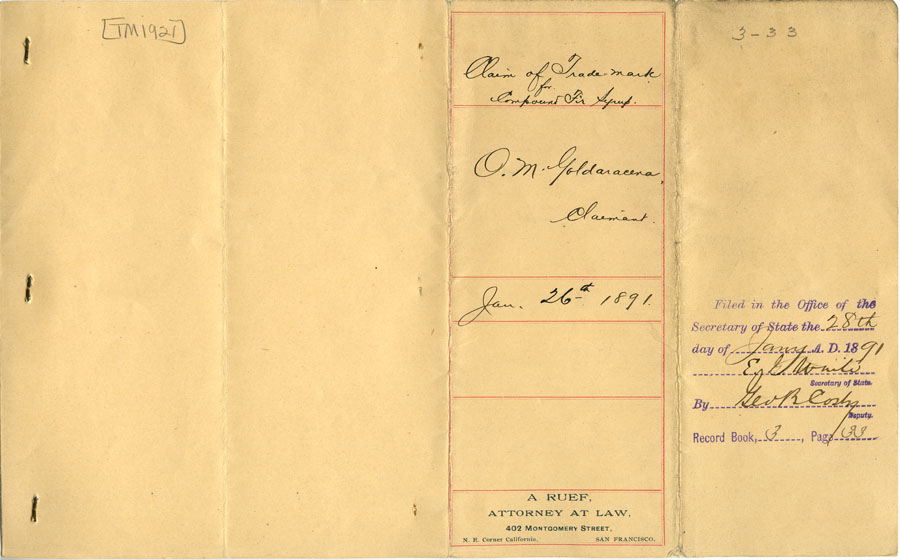 [TM1921]
Claim of Trade-mark
for
Compound Fir Syrup.
O. M. Goldaracena,
Claimant.
Jan. 26th 1891.
A RUEF,
ATTORNEY AT LAW,
402 MONTGOMERY STREET,
N. E. Corner California. SAN FRANCISCO.
3-33
Filed in the Office of the
Secretary of State the 28th
day of Jany A. D. 1891
Secretary of State.
By Geo R Cosby
Deputy.
Record Book, 3, Page 33